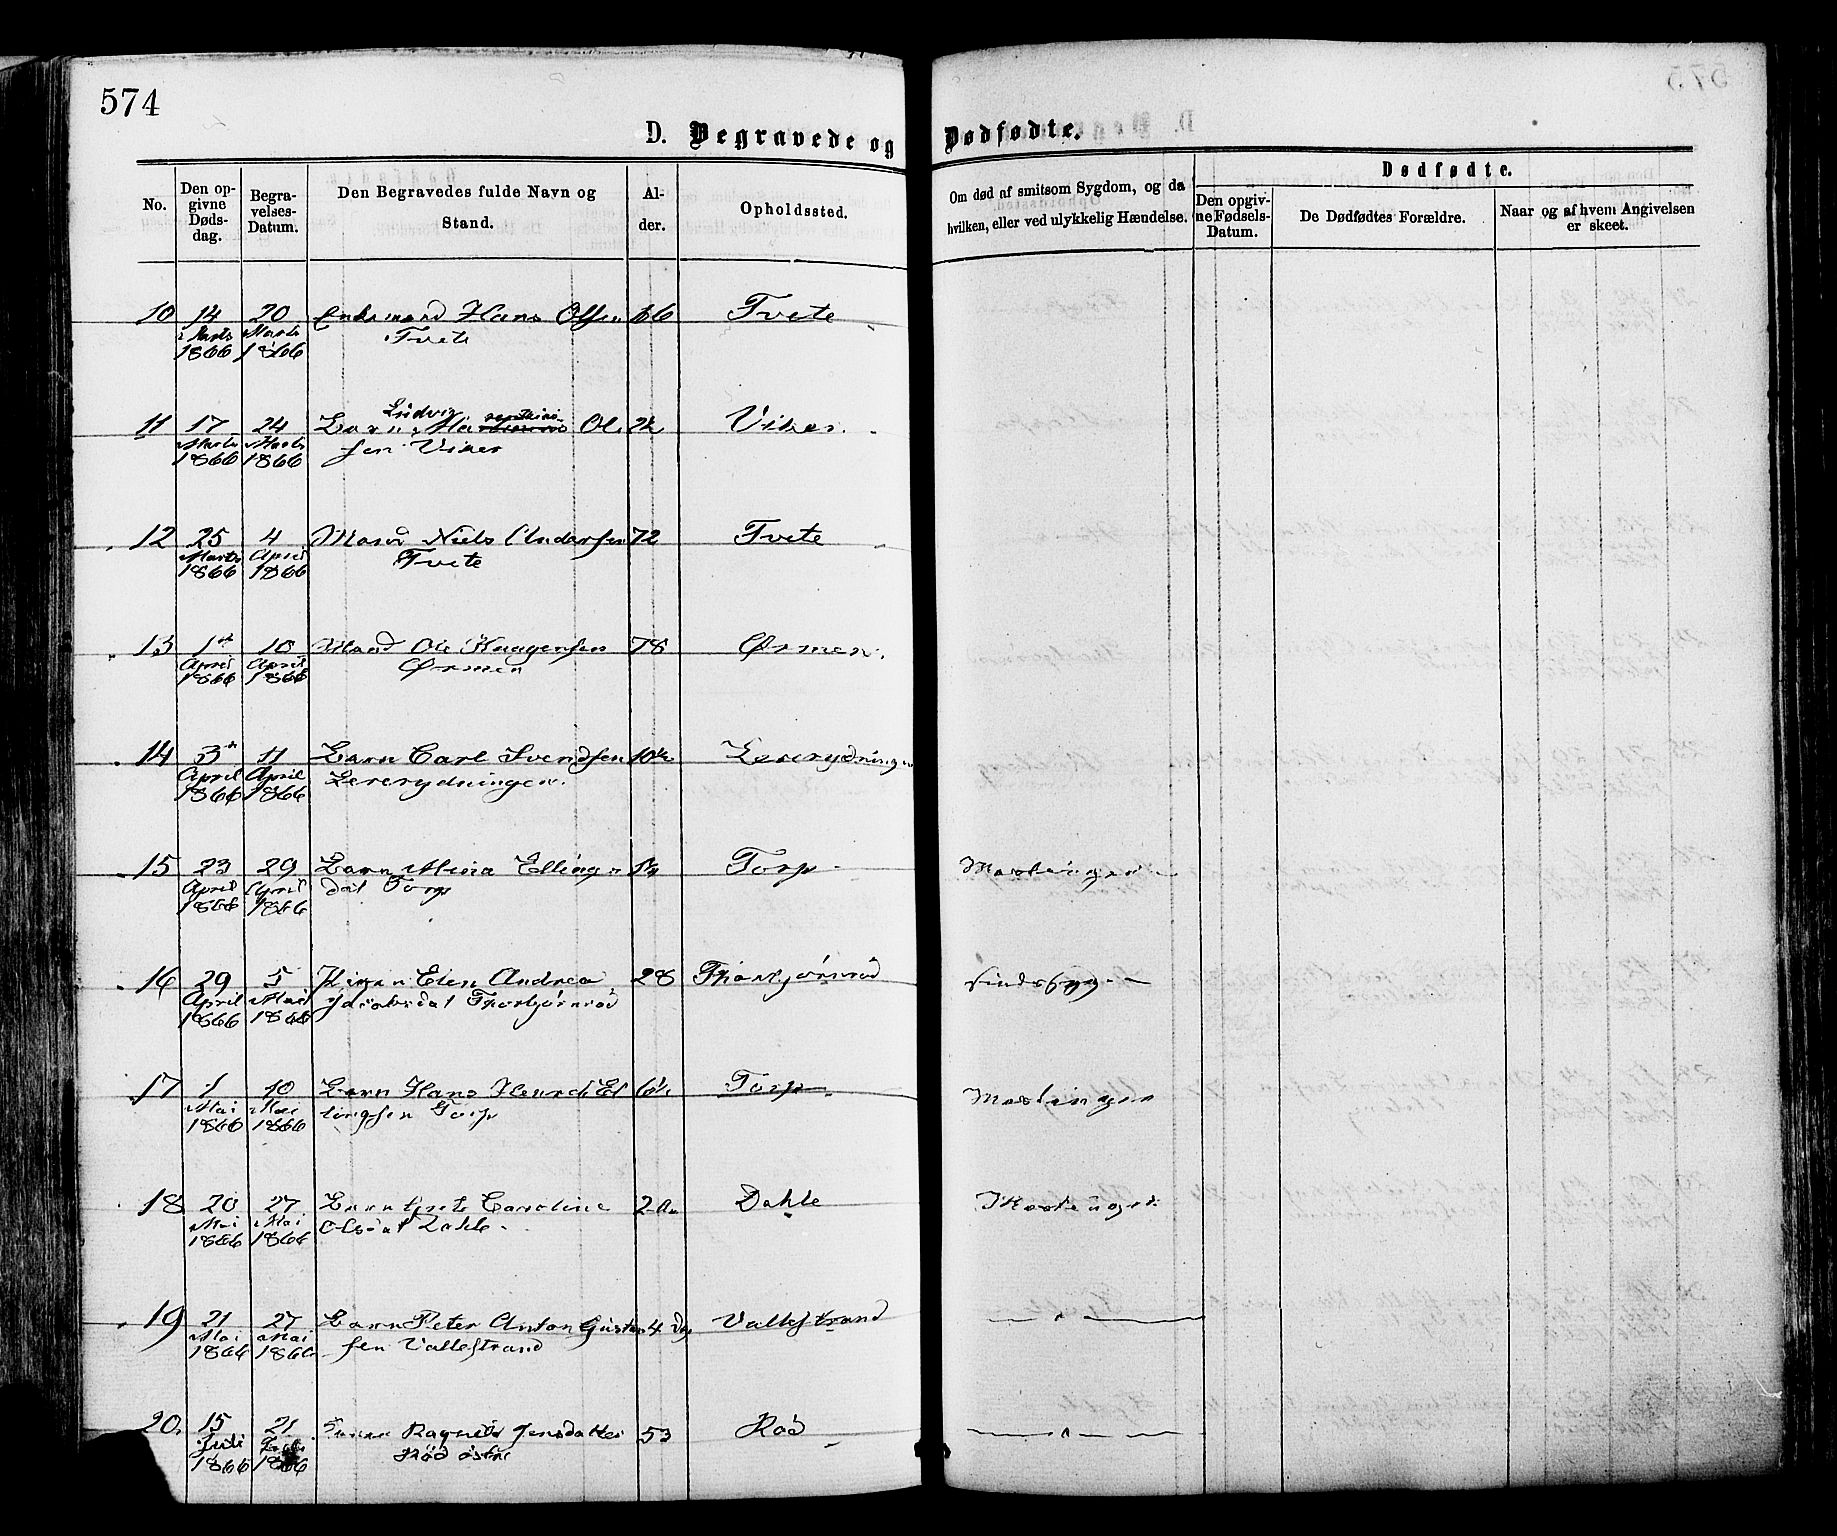 574
D. Begravede og Dødfødte.
No.
Den opgivne Dødsdag.
Begravelses-Datum.
Den Begravedes fulde Navn og Stand.
Alder.
Opholdssted.
Om død af smitsom Sygdom, og da hvilken, eller ved ulykkelig Hændelse.
Dødfødte.
Den opgivne Fødsels-Datum.
De Dødfødtes Forældre.
Naar og af hvem Angivelsen er skeet.
10 14 20 Enkemand Hans Olsen 66 Tvete
Marts Marts Tvete
1866 1866
11 17 24 Barn Ludvig Ol 2 Viker.
Marts Marts sen Viker
1866 1866
12 25 4 Mand Niels Andersen 72 Tvete
Marts April Tvete
1866 1866
13 1st 10 Mand Ole Haagensen 78 Ørmen.
April April Ørmen
1866 1866
14 3 11 Barn Carl Svendsen Lererydningen
April April Lererydningen.
1866 1866
15 23 29 Barn Mina Ellings Torp Mæslinger
April April dat Torp
1866 1866
16 29 5 Elen Andrea 28 Thorbjørnrød Sindssyg
April Mai Jacobsdat Thorbjørnrød
1866 1866
17 1 10 Barn Hans Henrik El Torp Mæslinger
Mai Mai lingsen Torp
1866 1866
18 20 27 Barn Caroline 2 Dahle Mæslinger
Mai Mai Olsdat Dahle
1866 1866
19 21 27 Barn Peter Anton Gustav 4 Vallestrand — " —
Mai Mai sen Vallestrand
1866 1866
20 15 21 Jensdatter 53 Rød — " —
Juli Juli Rød østre
1866 1866